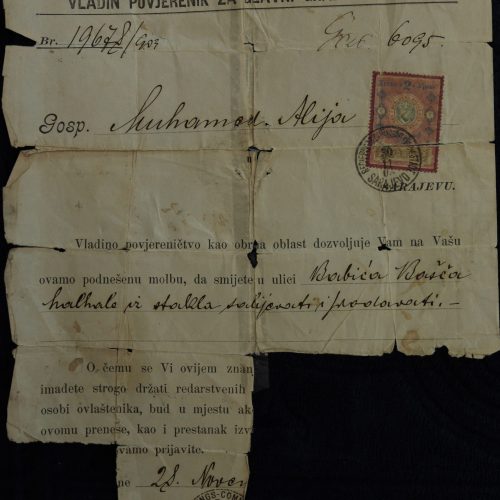 VLADIN POVJERENIK ZA GLAVNI
Br. 19678/903
6095.
Gosp. Muhamed Alija
SARAJEVO
SARAJEVU.
Vladino povjereništvo kao obrtna oblast dozvoljuje Vam na Vašu
ovamo podnešenu molbu, da smijete u ulici Babića Bašča
halhale iz stakla salijevati i prodavati.-
O čemu se Vi ovijem znan
imadete strogo držati redarstvenih
osobi ovlaštenika, bud u mjestu ak
ovomu prenese, kao i prestanak izv
vamo prijavite.
ne 28. Novem
NGS-COM